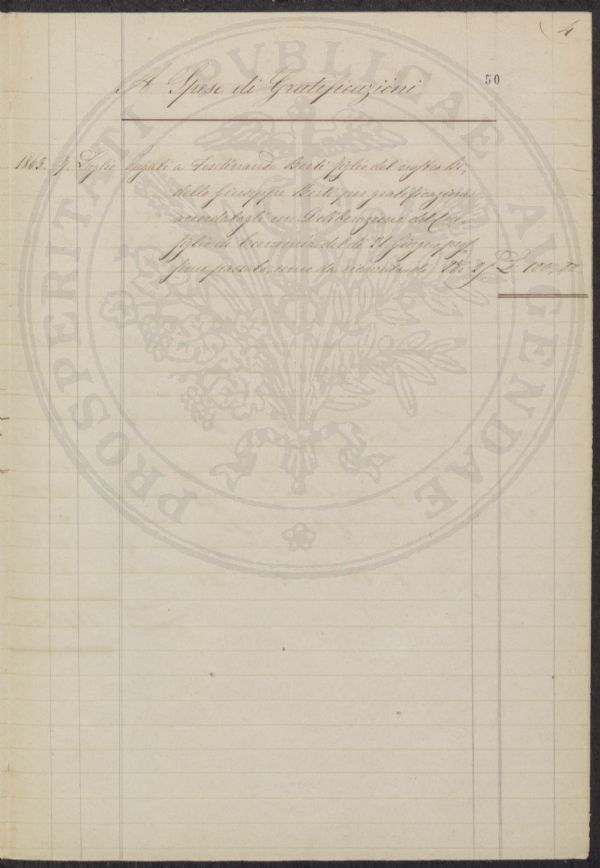 4
50
A Spese di Gratificazioni
1863. 9. Luglio Pagati a Ferdinando Berti figlio del nostro Bi,
dello Giuseppe Berti per gratificazione
accordatagli con Deliberazione del Con,
siglio di del dì 21 Giugno
passato, come da No 29 L. 100, 00
PROSPERITATI PVBLICAE AVGENDAE